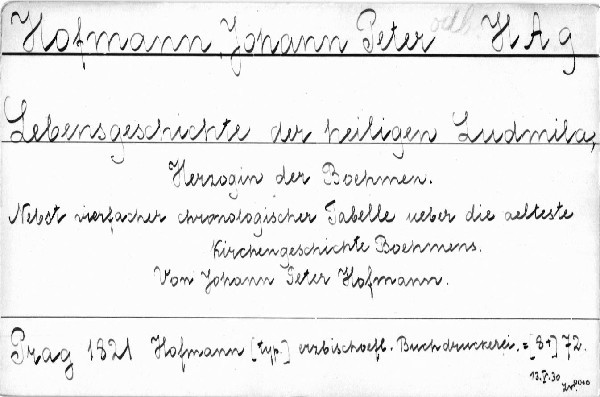 Hofmann, Johann Peter odb. H A g
Lebensgeschichte der heiligen Ludmila,
Herzogin der Boehmen.
Nebst vierfacher chronologischer Tabelle ueber die aelteste
Kirchengeschichte Boehmens.
Von Johann Peter Hofmann.
Prag 1821 Hofmann [typ.] erzbischoefl. Buchdruckerei. = [8+] 72.
13.V.30